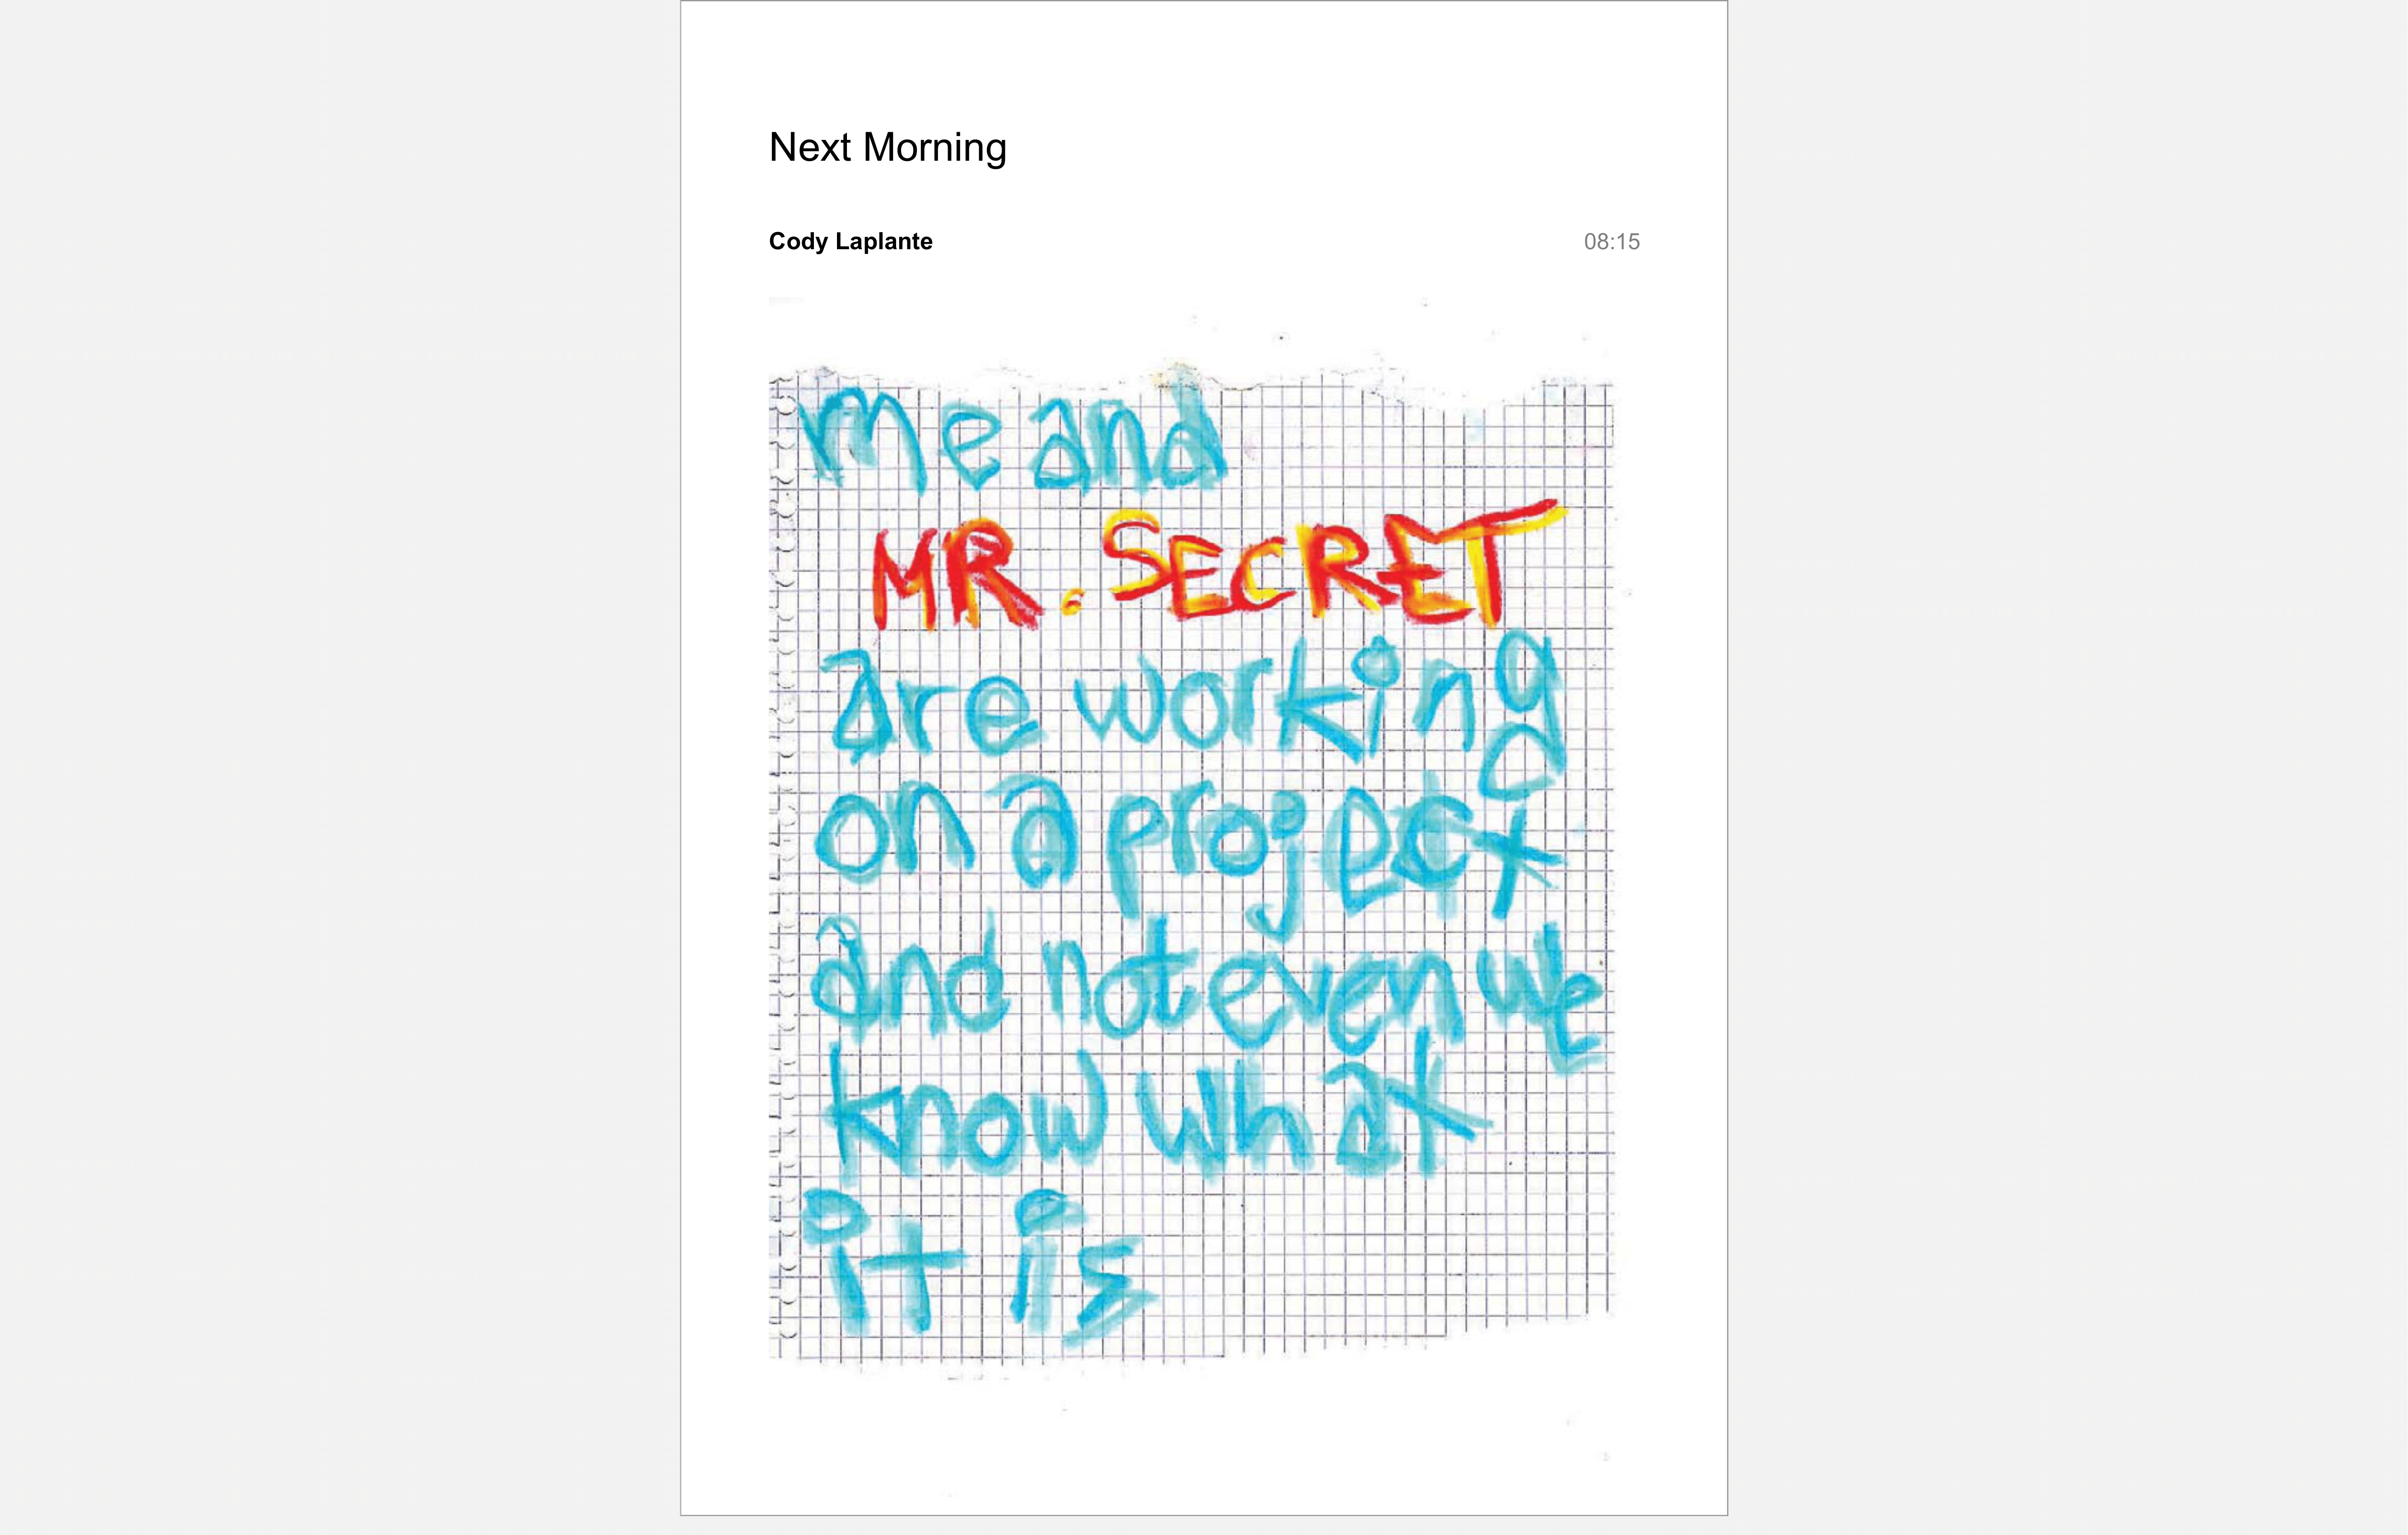 Next Morning
Cody Laplante 08:15
me and
MR. SECRET
are working
on a project
and not even we
know what
it is